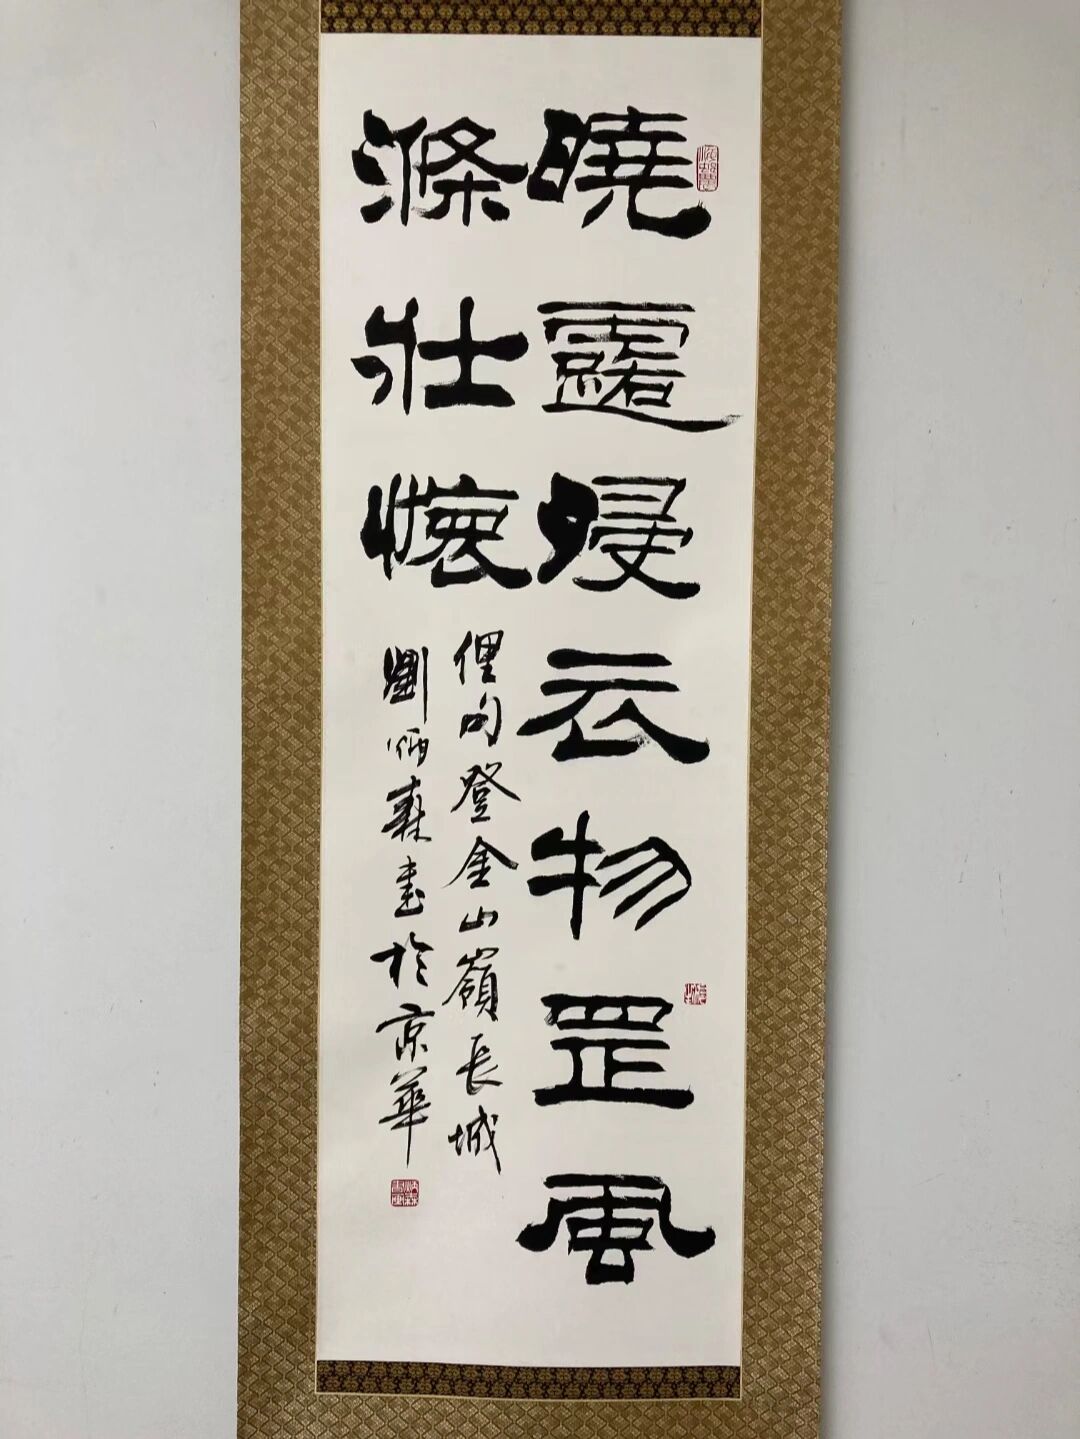 曉露浸衣物罡風
滌壯懷
俚句登金山嶺長城
劉炳森書於京華